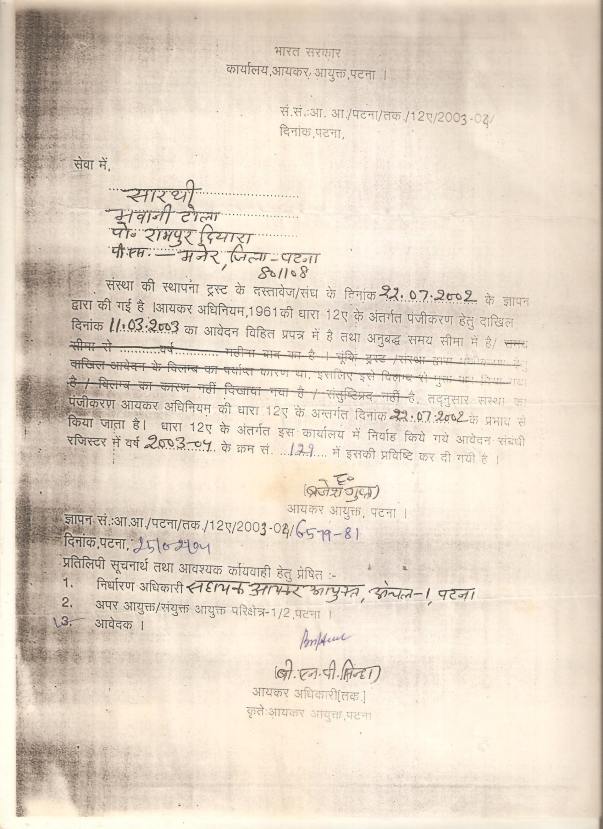 भारत सरकार
कार्यालय,आयकर, आयुक्त,पटना ।
सं.सं:आ. आ./पटना/तक./12ए/2003-04/
दिनांक,पटना,
सेवा में,
सारथी
भवानी टोला
पो॰ रामपुर दियारा
मनेर, जिला-पटना
801108
संस्था की स्थापना ट्रस्ट के दस्तावेज/संघ के दिनांक 22.07.2002 के ज्ञापन
द्वारा की गई है ।आयकर अधिनियम,1961की धारा 12ए के अंतर्गत पंजीकरण हेतु दाखिल
दिनांक 11.03.2003 का आवेदन विहित प्रपत्र में है तथा अनुबद्ध समय सीमा में है/
सीमा से ............वर्ष........... महीना बाद का है । चूंकि ट्रस्ट /संस्था द्वारा
दाखिल आवेदन के विलम्ब का पर्याप्त कारण था, इसलिए इसे विलम्ब से
है / विलम्ब का कारण नहीं दिखाया गया है / संतुष्टिप्रद नहीं है, तद्नुसार संस्था का
पंजीकरण आयकर अधिनियम की धारा 12ए के अन्तर्गत दिनांक 22.07.2002 के प्रभाव से
किया जाता है। धारा 12ए के अंतर्गत इस कार्यालय में निर्वाह किये गये आवेदन संबंधी
रजिस्टर में वर्ष 2003-04 के क्रम सं. 129 में इसकी प्रविष्टि कर दी गयी है ।
ह॰
(ब्रजेश गुप्ता)
आयकर आयुक्त, पटना ।
ज्ञापन सं.:आ.आ./पटना/तक./12ए/2003-04/6579-81
दिनांक,पटना,
प्रतिलिपी सूचनार्थ तथा आवश्यक कार्यवाही हेतु प्रेषित :-
1. निर्धारण अधिकारी सहायक आयकर आयुक्त, अंचल-1, पटना
2. अपर आयुक्त/संयुक्त आयुक्त परिक्षेत्र-1/2,पटना ।
3. आवेदक ।
(बी.एन.पी.सिन्हा)
आयकर अधिकारी[तक.]
कृते:आयकर आयुक्त,पटना